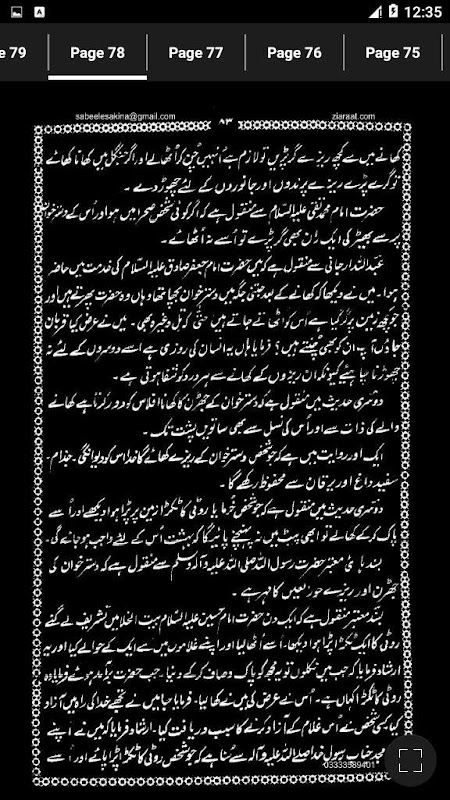 12:35
e 79 Page 78 Page 77 Page 76 Page 75
sabeelesakina@gmail.com ۸۳ ziaraat.com
کھانے میں سے کچھ ریزے گر پڑیں تو لازم ہے اُنہیں چُن کر اُٹھالے اور اگر جنگل میں کھانا کھائے
تو گرے پڑے ریزے پرندوں اور جانوروں کے لئے چھوڑ دے ۔
حضرت امام محمد تقی علیہ السلام سے منقول ہے کہ اگر کوئی شخص صحرا میں ہو اور اُس کے دسترخوان
پر سے بھیڑ کی ایک ران بھی گر پڑے تو اُسے نہ اُٹھائے ۔
عبداللہ ارجانی سے منقول ہے کہ میں حضرت امام جعفر صادق علیہ السلام کی خدمت میں حاضر
ہوا ۔ میں نے دیکھا کہ کھانے کے بعد جتنی جگہ میں دسترخوان بچھا تھا وہاں وہ حضرت پھرتے ہیں اور
جو کچھ زمین پر گر گیا ہے اُس کو اٹھاتے جاتے ہیں حتٰی کہ تل وغیرہ بھی ۔ میں نے عرض کیا قربان
جاؤں آپ ان کو بھی چنتے ہیں ؟ فرمایا ہاں یہ انسان کی روزی ہے اسے دوسروں کے لئے نہ
چھوڑنا چاہیئے کیونکہ ان ریزوں کے کھانے سے ہر درد کو شفا ہوتی ہے ۔
دوسری حدیث میں منقول ہے کہ دسترخوان کے جھڑن کا کھانا افلاس کو دور کرتا ہے کھانے
والے کی ذات سے اور اُس کی نسل سے بھی ساتویں پشت تک ۔
ایک اور روایت میں ہے کہ جو شخص دسترخوان کے ریزے کھائے گا خدا اس کو دیوانگی ۔ جذام ۔
سفید داغ اور یرقان سے محفوظ رکھے گا ۔
دوسری حدیث میں منقول ہے کہ جو شخص خُرما یا روٹی کا ٹکڑا زمین پر پڑا ہوا دیکھے اور اُسے
پاک کرکے کھالے تو ابھی پیٹ میں نہ پہنچنے پائیگا کہ بہشت اُس کے لئے واجب ہو جائے گی ۔
بسند ہائے معتبر حضرت رسول اللہ صلی اللہ علیہ وآلہ وسلم سے منقول ہے کہ دسترخوان کی
جھڑن اور ریزے حورالعین کا مہر ہے ۔
بسند معتبر منقول ہے کہ ایک دن حضرت امام حسین علیہ السلام بیت الخلا میں تشریف لے گئے
روٹی کا ایک ٹکڑا پڑا ہوا دیکھا ۔ اُسے اُٹھا لیا اور اپنے غلاموں میں سے ایک کے حوالے کیا اور یہ
ارشاد فرمایا کہ جب میں نکلوں تو یہ مجھ کو پاک و صاف کرکے دینا ۔ جب حضرت برآمد ہوئے فرمایا وہ
روٹی کا ٹکڑا کہاں ہے ۔ اُس نے عرض کی میں نے کھا لیا ۔ فرمایا جا میں نے تجھے خدا کی راہ میں آزاد
کیا کسی شخص نے اُس غلام کے آزاد کرنے کا سبب دریافت کیا ۔ ارشاد فرمایا کہ میں نے اپنے
جد جناب رسول خدا صلے اللہ علیہ وآلہ سے سُنا ہے کہ جو شخص روٹی کا ٹکڑا پڑا پائے اور اُسے
03333589401